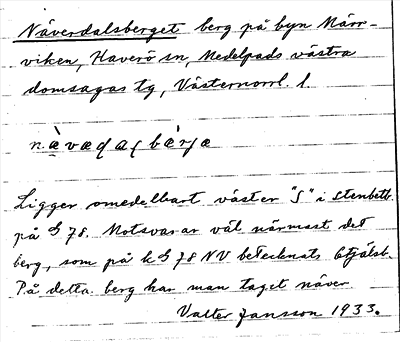 Näverdalsberget berg på byn Märr-
viken, Haverö sn, Medelpads västra
domsagas tg, Västernorrl. l.
Ligger omedelbart väster "S" i Stenbett.
på S 78. Motsvarar väl närmast det
berg, som på kS 78 NV betecknats
På detta berg har man taget näver
Valter Jansson 1933.